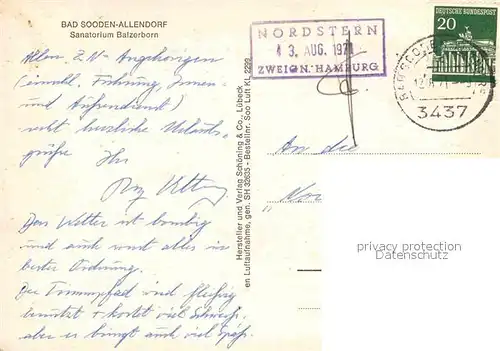 BAD SOODEN-ALLENDORF
Sanatorium Balzerborn
Allen Z.N-Angehörigen
(einschl. Führung, Innen-
und Außendienst)
recht herzliche Urlaubs-
grüße Ihr
Das Wetter ist
und auch sonst alles in
bester Ordnung.
Der Trimmpfad wird fleißig
benutzt + kostet viel Schweiß,
aber es bringt auch viel Spaß.
Hersteller und Verlag Schöning & Co., Lübeck
en Luftaufnahme, gen. SH 32635 - Bestellnr. Soo Luft KL 2299
NORDSTERN
13. AUG. 1971
ZWEIGN. HAMBURG
DEUTSCHE BUNDESPOST
20
3437
An die
privacy protection
Datenschutz